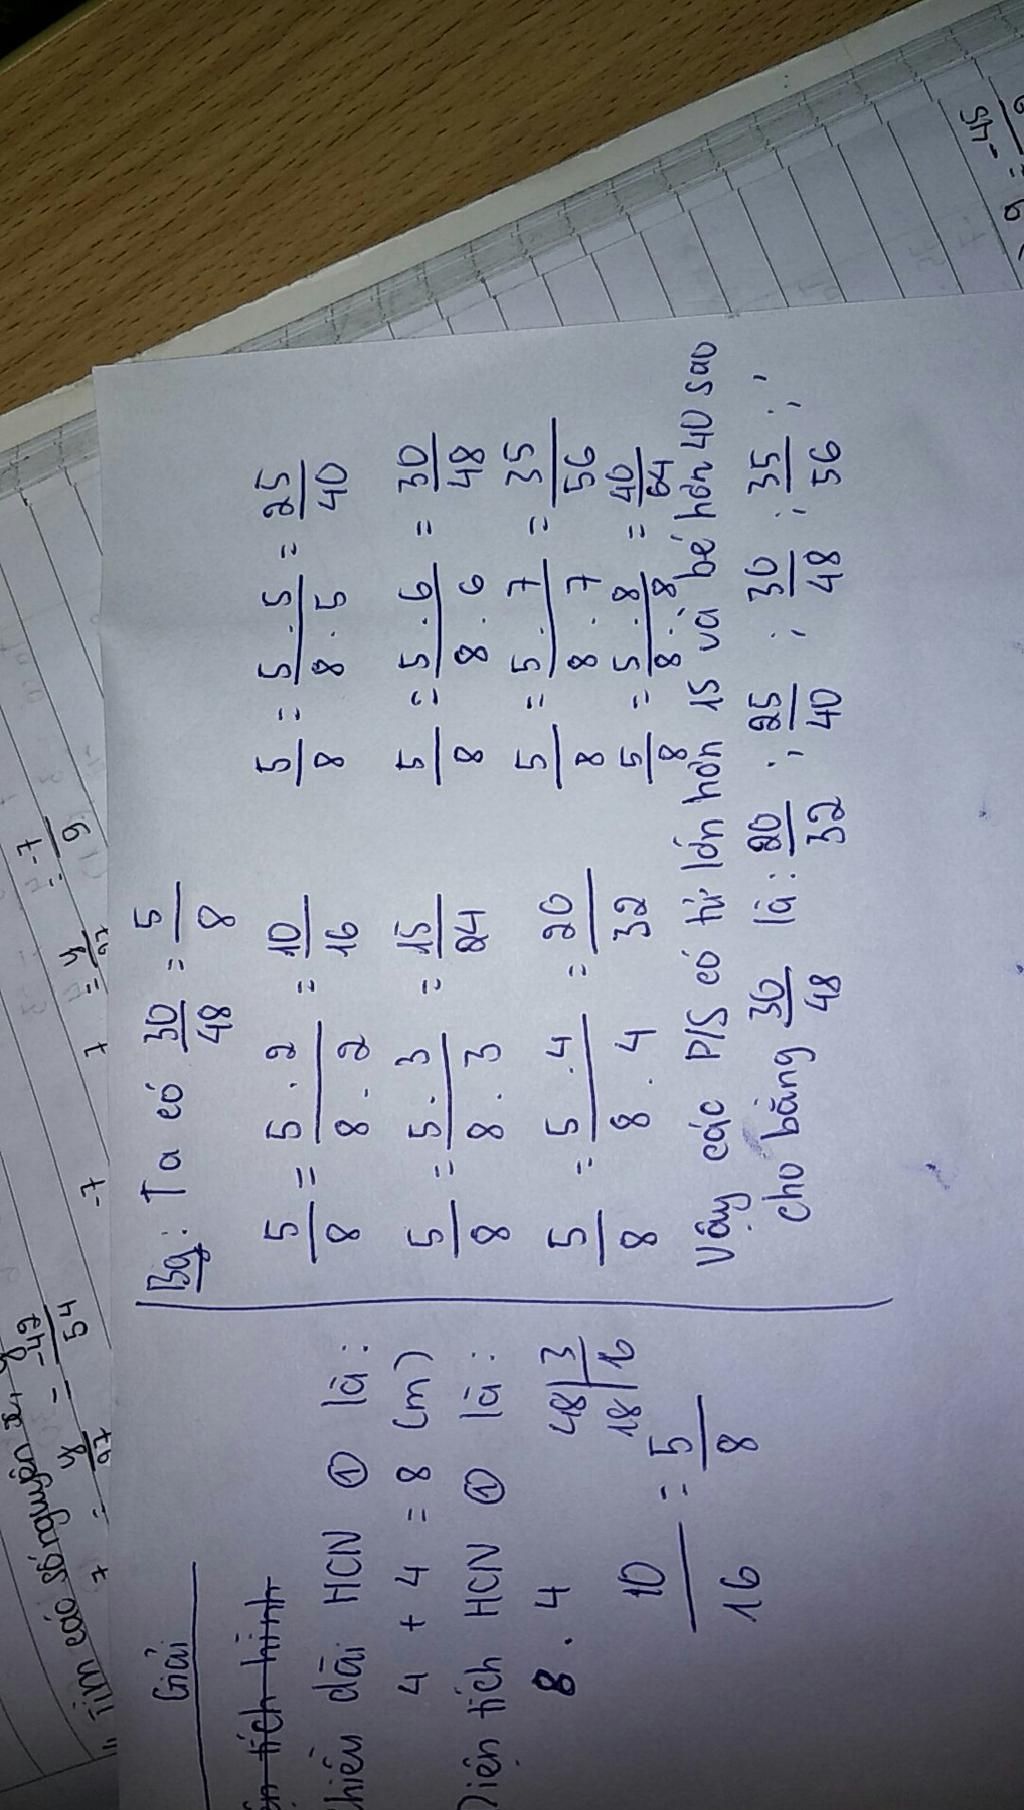 Tìm các số nguyên x, y
7 = y/27 = -42/54
-7
7 = y/27 = -7/9
Giải
HCN ① là:
4 + 4 = 8 (m)
tích HCN ① là:
8 . 4
48 | 3
18 | 16
10/16 = 5/8
Bg: Ta có 30/48 = 5/8
5/8 = 5 . 2/8 . 2 = 10/16
5/8 = 5 . 5/8 . 5 = 25/40
5/8 = 5 . 3/8 . 3 = 15/24
5/8 = 5 . 6/8 . 6 = 30/48
5/8 = 5 . 4/8 . 4 = 20/32
5/8 = 5 . 7/8 . 7 = 35/56
5/8 = 5 . 8/8 . 8 = 40/64
Vậy các P/S có tử lớn hơn 15 và bé hơn 40 sao
cho bằng 30/48 là: 20/32 ; 25/40 ; 30/48 ; 35/56 ; ;